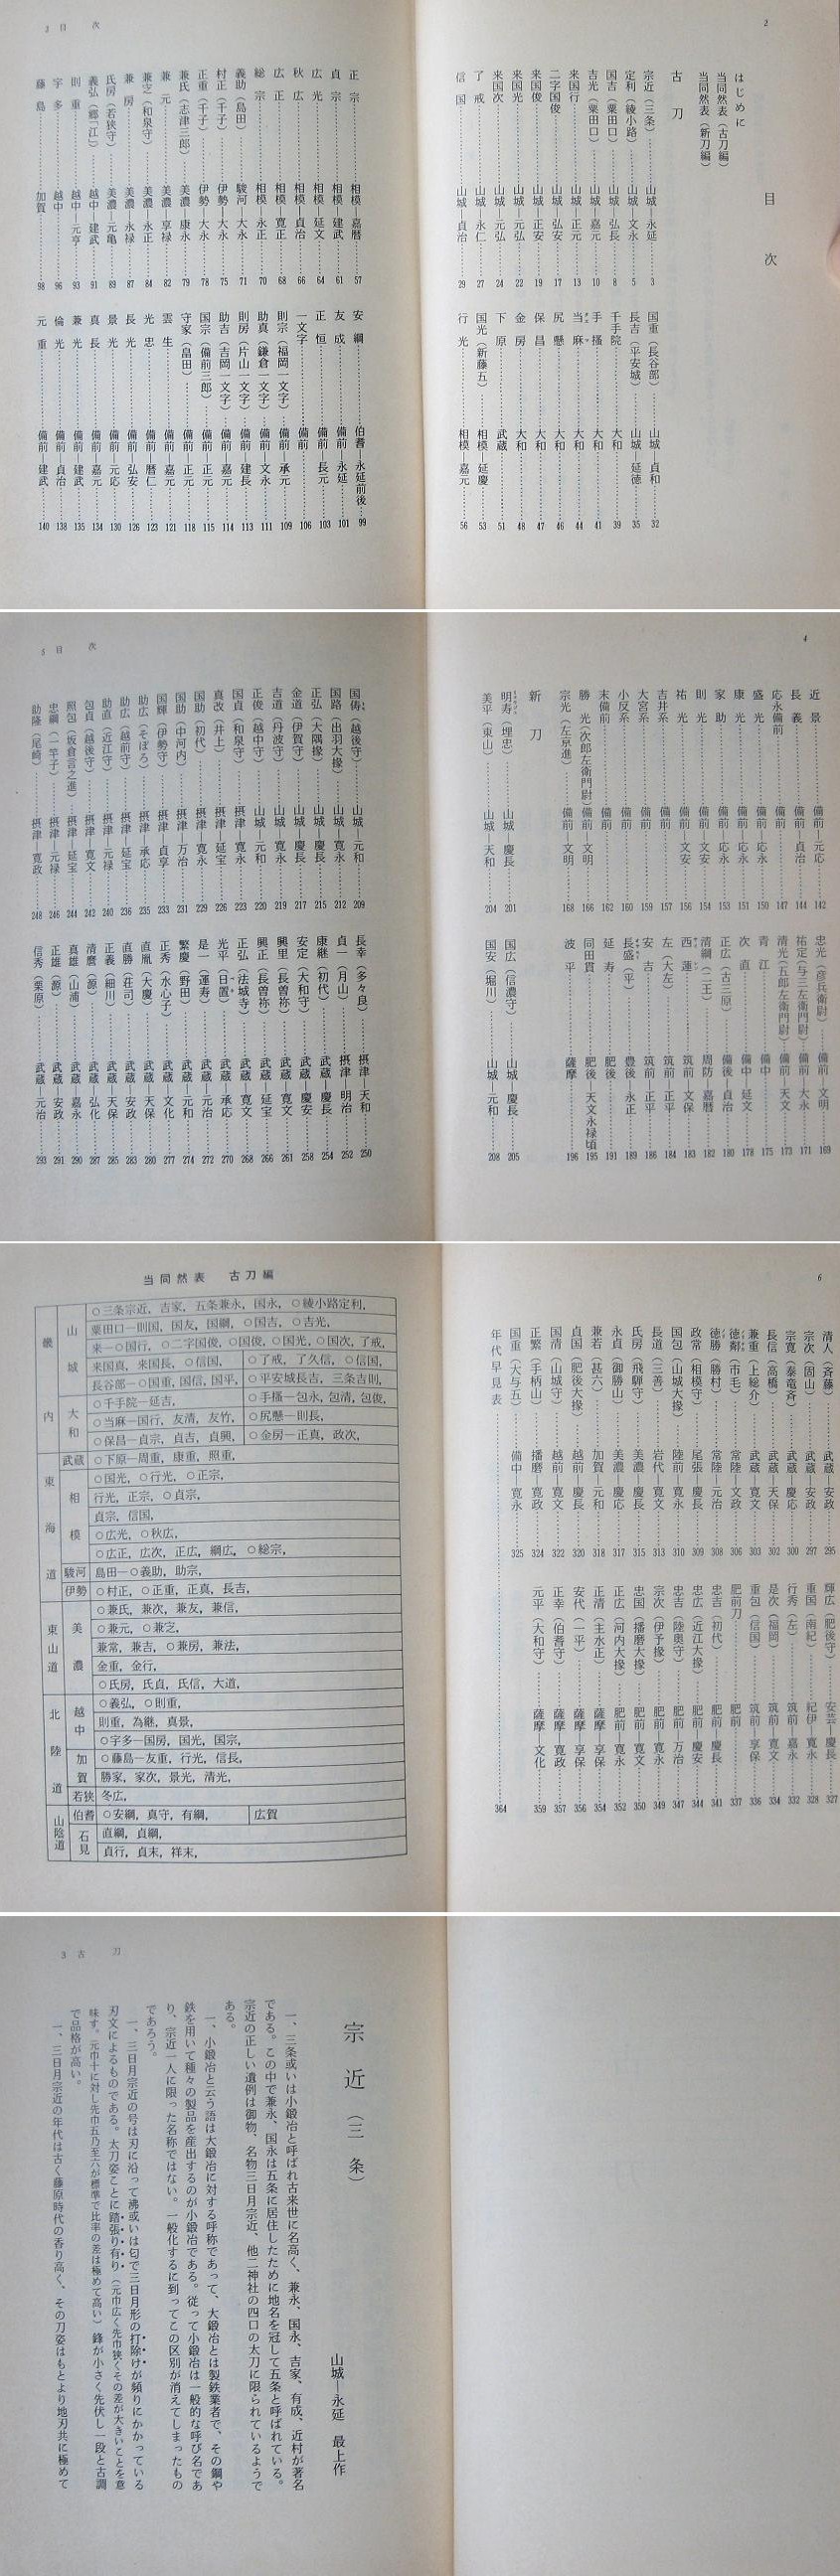 2
目次
はじめに
当同然表（古刀編）
当同然表（新刀編）
古刀
宗近（三条）……山城―永延……3
定利（綾小路）……山城―文永……5
国吉（粟田口）……山城―弘長……8
吉光（粟田口）……山城―嘉元……10
来国行……山城―正元……13
二字国俊……山城―弘安……17
来国俊……山城―正安……19
来国光……山城―元弘……22
来国次……山城―元弘……24
了戒……山城―永仁……27
信国……山城―貞治……29
国重（長谷部）……山城―貞和……32
長吉（平安城）……山城―延徳……35
千手院……大和……39
手掻……大和……41
当麻……大和……44
尻懸……大和……46
保昌……大和……47
金房……大和……48
下原……武蔵……51
国光（新藤五）……相模―延慶……53
行光……相模―嘉元……56
3 目次
正宗……相模―嘉暦……57
貞宗……相模―建武……61
広光……相模―延文……64
秋広……相模―貞治……66
広正……相模―寛正……68
総宗……相模―永正……70
義助（島田）……駿河―大永……71
村正（千子）……伊勢―大永……75
正重（千子）……伊勢―大永……78
兼氏（志津三郎）……美濃―康永……79
兼元……美濃―享禄……82
兼㝎（和泉守）……美濃―永正……84
兼房……美濃―永禄……87
氏房（若狭守）……美濃―元亀……89
義弘（郷「江」）……越中―建武……91
則重……越中―元亨……93
宇多……越中……96
藤島……加賀……98
安綱……伯耆―永延前後……99
友成……備前―永延……101
正恒……備前―長元……103
一文字……備前……106
則宗（福岡一文字）……備前―承元……109
助真（鎌倉一文字）……備前―文永……111
則房（片山一文字）……備前―建長……113
助吉（吉岡一文字）……備前―嘉元……114
国宗（備前三郎）……備前―正元……115
守家（畠田）……備前―正元……118
雲生……備前―嘉元……121
光忠……備前―暦仁……123
長光……備前―弘安……126
景光……備前―元応……130
真長……備前―嘉元……134
兼光……備前―建武……135
倫光……備前―貞治……138
元重……備前―建武……140
4
近景……備前―元応……142
長義……備前―貞治……144
応永備前……備前……147
盛光……備前―応永……150
康光……備前―応永……151
家助……備前―応永……153
則光……備前―文安……154
祐光……備前―文安……156
吉井系……備前……157
大宮系……備前……159
小反系……備前……160
末備前……備前……162
勝光（次郎左衛門尉）備前―文明……166
宗光（左京進）……備前―文明……168
新刀
明寿（埋忠）……山城―慶長……201
美平（東山）……山城―天和……204
忠光（彦兵衛尉）……備前―文明……169
祐定（与三左衛門尉）備前―大永……171
清光（五郎左衛門尉）備前―天文……173
青江……備中……175
次直……備中―延文……178
正広（古三原）……備後―貞治……180
清綱（二王）……周防―嘉暦……182
西蓮……筑前―文保……183
左（大左）……筑前―正平……184
安吉……筑前―正平……186
長盛（平）……豊後―永正……189
延寿……肥後……191
同田貫……肥後―天文永禄頃……195
波平……薩摩……196
国広（信濃守）……山城―慶長……205
国安（堀川）……山城―元和……208
5 目次
国儔（越後守）……山城―元和……209
国路（出羽大掾）……山城―寛永……212
正弘（大隅掾）……山城―慶長……215
金道（伊賀守）……山城―慶長……217
吉道（丹波守）……山城―寛永……219
正俊（越中守）……山城―元和……220
国貞（和泉守）……摂津―寛永……223
真改（井上）……摂津―延宝……226
国助（初代）……摂津―寛永……229
国助（中河内）……摂津―万治……231
国輝（伊勢守）……摂津―貞享……233
助広（そぼろ）……摂津―承応……235
助広（越前守）……摂津―延宝……236
助直（近江守）……摂津―延宝……240
包貞（越後守）……摂津―寛文……242
照包（坂倉言之進）……摂津―延宝……244
忠綱（一竿子）……摂津―元禄……246
助隆（尾崎）……摂津―寛政……248
長幸（多々良）……摂津―天和……250
貞一（月山）……摂津―明治……252
康継（初代）……武蔵―慶長……254
安定（大和守）……武蔵―慶安……258
興里（長曽祢）……武蔵―寛文……261
興正（長曽祢）……武蔵―延宝……266
正弘（法城寺）……武蔵―寛文……268
光平（日置）……武蔵―承応……270
是一（運寿）……武蔵―元治……272
繁慶（野田）……武蔵―元和……274
正秀（水心子）……武蔵―文化……277
直胤（大慶）……武蔵―天保……280
直勝（荘司）……武蔵―安政……283
正義（細川）……武蔵―天保……285
清麿（源）……武蔵―弘化……287
真雄（山浦）……武蔵―嘉永……290
正雄（源）……武蔵―安政……291
信秀（栗原）……武蔵―元治……293
6
清人（斉藤）……武蔵―安政……295
宗次（固山）……武蔵―安政……297
宗寛（泰竜斉）……武蔵―慶応……300
長信（高橋）……武蔵―天保……302
兼重（上総介）……武蔵―寛文……303
徳鄰（市毛）……常陸―文政……306
徳勝（勝村）……常陸―元治……308
政常（相模守）……尾張―慶長……309
国包（山城大掾）……陸前―寛永……310
長道（三善）……岩代―寛文……313
氏房（飛騨守）……美濃―慶長……315
永貞（御勝山）……美濃―慶応……317
兼若（甚六）……加賀―元和……318
貞国（肥後大掾）……越前―慶長……320
国清（山城守）……越前―寛文……322
正繁（手柄山）……播磨―寛政……324
国重（大与五）……備中―寛永……325
年代早見表……364
輝広（肥後守）……安芸―慶長……327
重国（南紀）……紀伊―寛永……328
行秀（左）……筑前―嘉永……332
是次（福岡）……筑前―寛文……334
重包（信国）……筑前―享保……336
肥前刀……肥前……337
忠吉（初代）……肥前―慶長……341
忠広（近江大掾）……肥前―慶安……344
忠吉（陸奥守）……肥前―万治……347
宗次（伊予掾）……肥前―寛永……349
忠国（播磨大掾）……肥前―寛文……350
正広（河内大掾）……肥前―寛永……352
正清（主水正）……薩摩―享保……354
安代（一平）……薩摩―享保……356
正幸（伯耆守）……薩摩―寛政……357
元平（大和守）……薩摩―文化……359
当同然表　古刀編
畿内
山城
○三条宗近，吉家，五条兼永，国永，○綾小路定利，
粟田口―則国，国友，国綱，○国吉，○吉光，
来―○国行，○二字国俊，○国俊，○国光，○国次，了戒，
来国真，来国長，○信国，
○了戒，了久信，○信国，
長谷部―○国重，国信，国平，
○平安城長吉，三条吉則，
大和
○千手院―延吉，
○手掻―包永，包清，包俊，
○当麻―国行，友清，友竹，
○尻懸―則長，
○保昌―貞宗，貞吉，貞興，
○金房―正真，政次，
東海道
武蔵
○下原―周重，康重，照重，
相模
○国光，○行光，○正宗，
行光，正宗，○貞宗，
貞宗，信国，
○広光，○秋広，
○広正，広次，正広，綱広，○総宗，
駿河
島田―○義助，助宗，
伊勢
○村正，○正重，正真，長吉，
東山道
美濃
○兼氏，兼次，兼友，兼信，
○兼元，○兼㝎，
兼常，兼吉，○兼房，兼法，
金重，金行，
○氏房，氏貞，氏信，大道，
北陸道
越中
○義弘，○則重，
則重，為継，真景，
○宇多―国房，国光，国宗，
加賀
○藤島―友重，行光，信長，
勝家，家次，景光，清光，
若狭
冬広，
山陰道
伯耆
○安綱，真守，有綱，
広賀
石見
直綱，貞綱，
貞行，貞末，祥末，
3 古刀
宗近（三条）
山城―永延　最上作
一、三条或いは小鍛冶と呼ばれ古来世に名高く、兼永、国永、吉家、有成、近村が著名
である。この中で兼永、国永は五条に居住したために地名を冠して五条と呼ばれている。
宗近の正しい遺例は御物、名物三日月宗近、他二神社の四口の太刀に限られているようで
ある。
一、小鍛冶と云う語は大鍛冶に対する呼称であって、大鍛冶とは製鉄業者で、その鋼や
鉄を用いて種々の製品を産出するのが小鍛冶である。従って小鍛冶は一般的な呼び名であ
り、宗近一人に限った名称ではない。一般化するに到ってこの区別が消えてしまったもの
であろう。
一、三日月宗近の号は刃に沿って沸或いは匂で三日月形の打除けが頻りにかかっている
刃文によるものである。太刀姿ことに踏張り有り（元巾広く先巾狭くその差が大きいことを意
味す。元巾十に対し先巾五乃至六が標準で比率の差は極めて高い）鋒が小さく先伏し一段と古調
で品格が高い。
一、三日月宗近の年代は古く藤原時代の香り高く、その刀姿はもとより地刃共に極めて